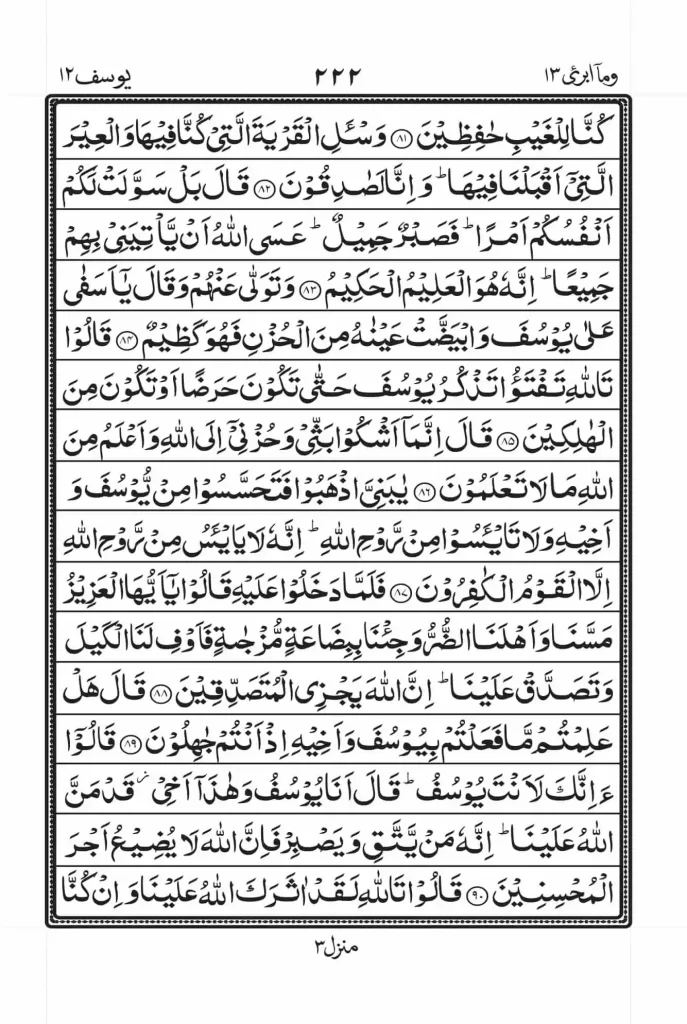 ومآ ابرئ ١٣ ٢٢٢ يوسف ١٢
كُنَّا لِلْغَيْبِ حٰفِظِيْنَ ﴿٨١﴾ وَسْـَٔلِ الْقَرْيَةَ الَّتِيْ كُنَّا فِيْهَا وَالْعِيْرَ
الَّتِيْٓ اَقْبَلْنَا فِيْهَا ؕ وَاِنَّا لَصٰدِقُوْنَ ﴿٨٢﴾ قَالَ بَلْ سَوَّلَتْ لَكُمْ
اَنْفُسُكُمْ اَمْرًا ؕ فَصَبْرٌ جَمِيْلٌ ؕ عَسَى اللّٰهُ اَنْ يَّاْتِيَنِيْ بِهِمْ
جَمِيْعًا ؕ اِنَّهٗ هُوَ الْعَلِيْمُ الْحَكِيْمُ ﴿٨٣﴾ وَتَوَلّٰى عَنْهُمْ وَقَالَ يٰٓاَسَفٰى
عَلٰى يُوْسُفَ وَابْيَضَّتْ عَيْنٰهُ مِنَ الْحُزْنِ فَهُوَ كَظِيْمٌ ﴿٨٤﴾ قَالُوْا
تَاللّٰهِ تَفْتَؤُا تَذْكُرُ يُوْسُفَ حَتّٰى تَكُوْنَ حَرَضًا اَوْ تَكُوْنَ مِنَ
الْهٰلِكِيْنَ ﴿٨٥﴾ قَالَ اِنَّمَآ اَشْكُوْا بَثِّيْ وَحُزْنِيْٓ اِلَى اللّٰهِ وَاَعْلَمُ مِنَ
اللّٰهِ مَا لَا تَعْلَمُوْنَ ﴿٨٦﴾ يٰبَنِيَّ اذْهَبُوْا فَتَحَسَّسُوْا مِنْ يُّوْسُفَ وَ
اَخِيْهِ وَلَا تَايْـَٔسُوْا مِنْ رَّوْحِ اللّٰهِ ؕ اِنَّهٗ لَا يَايْـَٔسُ مِنْ رَّوْحِ اللّٰهِ
اِلَّا الْقَوْمُ الْكٰفِرُوْنَ ﴿٨٧﴾ فَلَمَّا دَخَلُوْا عَلَيْهِ قَالُوْا يٰٓاَيُّهَا الْعَزِيْزُ
مَسَّنَا وَاَهْلَنَا الضُّرُّ وَجِئْنَا بِبِضَاعَةٍ مُّزْجٰىةٍ فَاَوْفِ لَنَا الْكَيْلَ
وَتَصَدَّقْ عَلَيْنَا ؕ اِنَّ اللّٰهَ يَجْزِي الْمُتَصَدِّقِيْنَ ﴿٨٨﴾ قَالَ هَلْ
عَلِمْتُمْ مَّا فَعَلْتُمْ بِيُوْسُفَ وَاَخِيْهِ اِذْ اَنْتُمْ جٰهِلُوْنَ ﴿٨٩﴾ قَالُوْٓا
ءَاِنَّكَ لَاَنْتَ يُوْسُفُ ؕ قَالَ اَنَا يُوْسُفُ وَهٰذَآ اَخِيْ ؗ قَدْ مَنَّ
اللّٰهُ عَلَيْنَا ؕ اِنَّهٗ مَنْ يَّتَّقِ وَيَصْبِرْ فَاِنَّ اللّٰهَ لَا يُضِيْعُ اَجْرَ
الْمُحْسِنِيْنَ ﴿٩٠﴾ قَالُوْا تَاللّٰهِ لَقَدْ اٰثَرَكَ اللّٰهُ عَلَيْنَا وَاِنْ كُنَّا
منزل ٣